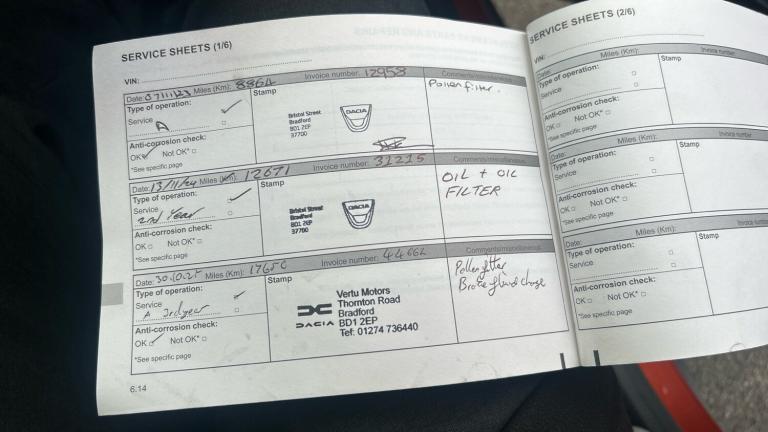 SERVICE SHEETS (1/6)
VIN:
Date: 07/11/23 Miles (Km): 8864 Invoice number: 12953 Comments/miscellaneous
Type of operation: Stamp
Service
A
Anti-corrosion check:
OK Not OK*
*See specific page
Bristol Street
Bradford
BD1 2EP
37700
DACIA
Pollen filter.
Date: 13/11/24 Miles (Km): 12671 Invoice number: 31215 Comments/miscellaneous
Type of operation: Stamp
Service
2nd Year
Anti-corrosion check:
OK Not OK*
*See specific page
Bristol Street
Bradford
BD1 2EP
37700
DACIA
OIL + OIL
FILTER
Date: 30.10.25 Miles (Km): Invoice number: Comments/miscellaneous
Type of operation: Stamp
Service
A 3rd year
Anti-corrosion check:
OK Not OK*
*See specific page
DACIA
Vertu Motors
Thornton Road
Bradford
BD1 2EP
Tel: 01274 736440
Pollen filter
Brake fluid change
6.14
SERVICE SHEETS (2/6)
VIN:
Date: Miles (Km): Invoice number
Type of operation: Stamp
Service
Anti-corrosion check:
OK Not OK*
*See specific page
Date: Miles (Km): Invoice number
Type of operation: Stamp
Service
Anti-corrosion check:
OK Not OK*
*See specific page
Date: Miles (Km):
Type of operation: Stamp
Service
Anti-corrosion check:
OK Not OK*
*See specific page